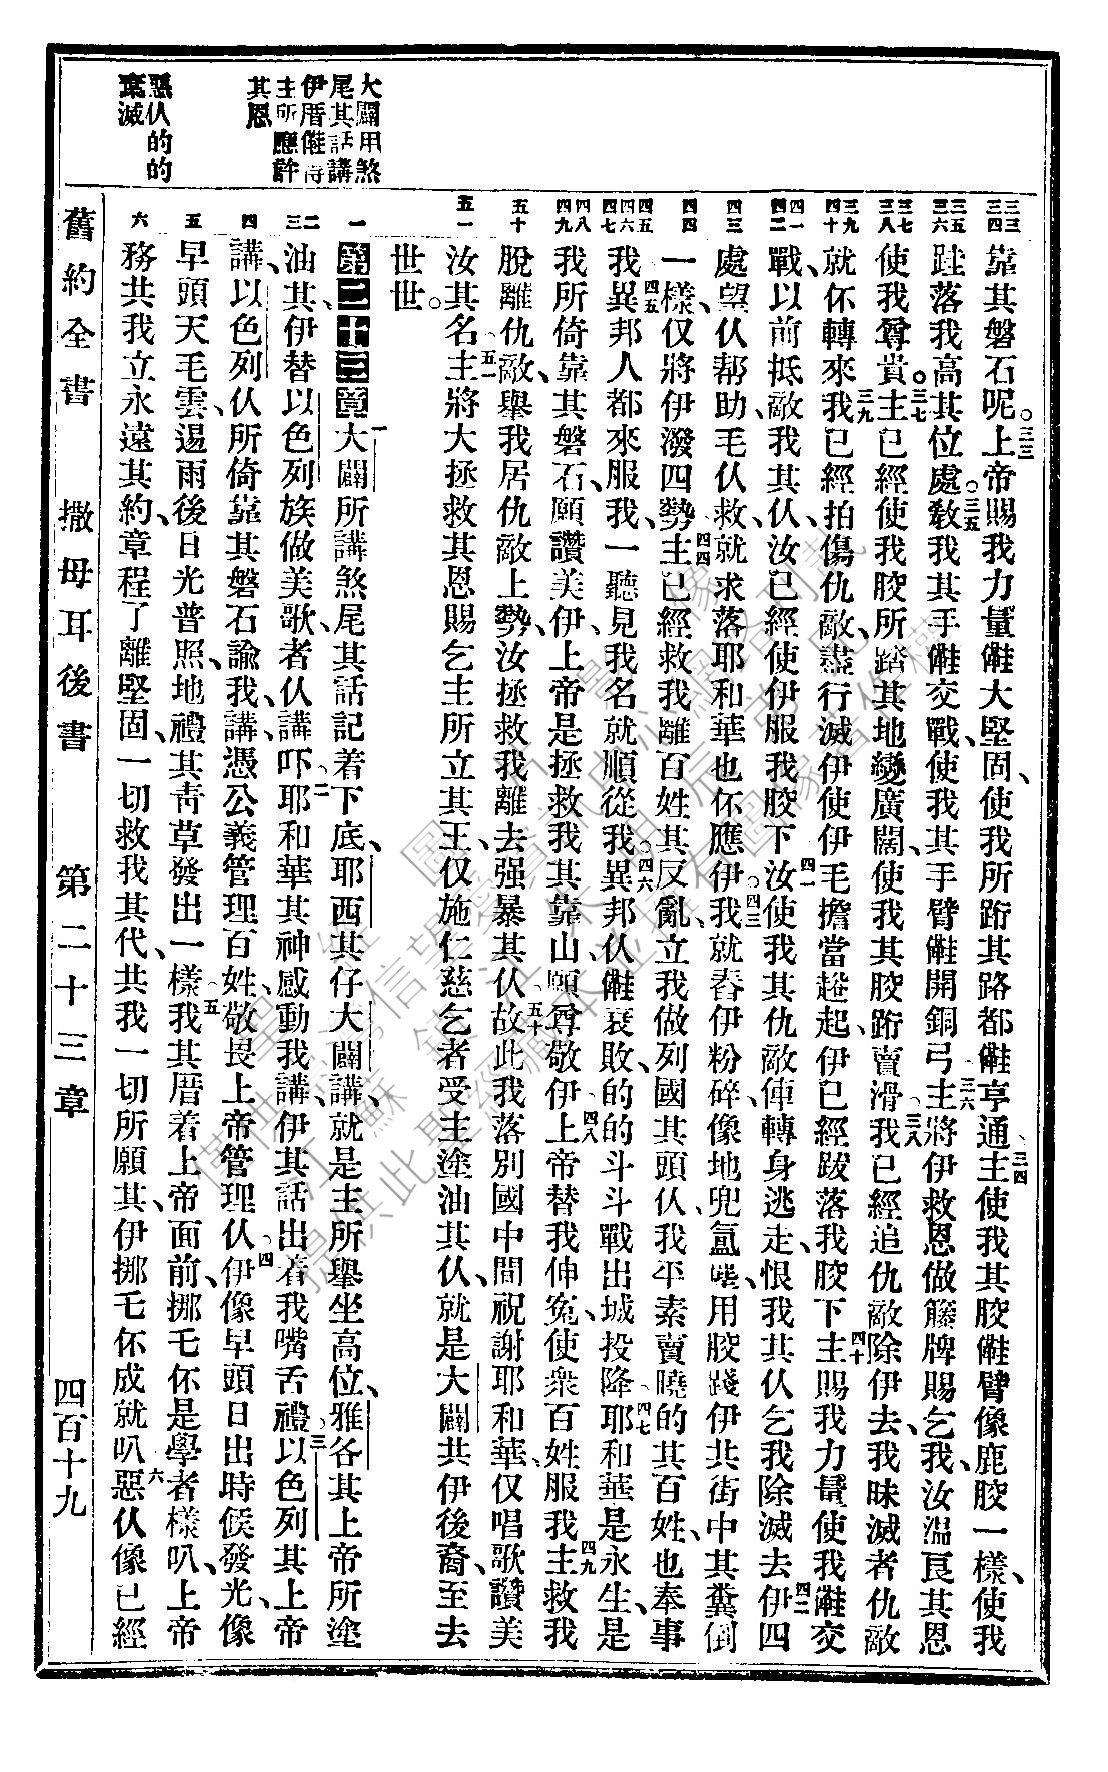 大闢用煞
尾其話講
伊厝
主所應許
其恩
惡仈的的
棄滅
三三 三四
三五 三六
三七 三八
三九 四十
四一 四二
四三
四四
四五 四六 四七
四八 四九
五十
五一
一
二 三
四
五
六
靠其磐石呢。三三上帝賜我力量大堅固、使我所跨其路都亨通、三四主使我其骹臂像鹿骹一樣、使我
跬落我高其位處。三五教我其手交戰、使我其手臂開銅弓、三六主將伊救恩做籐牌賜乞我、汝溫良其恩
使我尊貴。三七主已經使我骹所踏其地變廣闊、使我其骹跨賣滑、三八我已經追仇敵除伊去、我昧滅者仇敵
就伓轉來、三九我已經拍傷仇敵、盡行滅伊使伊毛擔當起伊已經跋落我骹下、四十主賜我力量使我交
戰、以前抵敵我其仈、汝已經使伊服我骹下、四一汝使我其仇敵俥轉身逃走、恨我其仈乞我除滅去、四二伊四
處望仈帮助、毛仈救、就求落耶和華也伓應伊。四三我就舂伊粉碎、像地兜塵、用骹踐伊共街中其糞倒
一樣、仅將伊潑四勢、四四主已經救我離百姓其反亂、立我做列國其頭仈、我平素賣曉的其百姓、也奉事
我、四五異邦人都來服我、一聽見我名就順從我。四六異邦仈衰敗、的的斗斗戰出城投降、四七耶和華是永生、是
我所倚靠其磐石、願讚美伊、上帝是拯救我其靠山、願尊敬伊、四八上帝替我伸冤、使衆百姓服我、四九主救我
脫離仇敵、舉我居仇敵上勢、汝拯救我離去强暴其仈、五十故此我落別國中間祝謝耶和華、仅唱歌讚美
汝其名、五一主將大拯救其恩賜乞主所立其王、仅施仁慈乞者受主塗油其仈、就是大闢共伊後裔、至去
世世。
第二十三章一大闢所講煞尾其話記着下底、耶西其仔大闢講、就是主所舉坐高位、雅各其上帝所塗
油其、伊替以色列族做美歌者仈講吓、二耶和華其神感動我講、伊其話出着我嘴舌禮、三以色列其上帝
講、以色列仈所倚靠其磐石諭我講、憑公義管理百姓、敬畏上帝管理仈、四伊像早頭日出時候發光、像
早頭天毛雲、逿雨後日光普照、地禮其靑草發出一樣、五我其厝着上帝面前、挪毛伓是學者樣叭、上帝
務共我立永遠其約、章程了離堅固、一切救我其代、共我一切所願其、伊挪乇伓成就叭、六惡仈像已經
舊約全書　撒母耳後書　第二十三章　四百十九